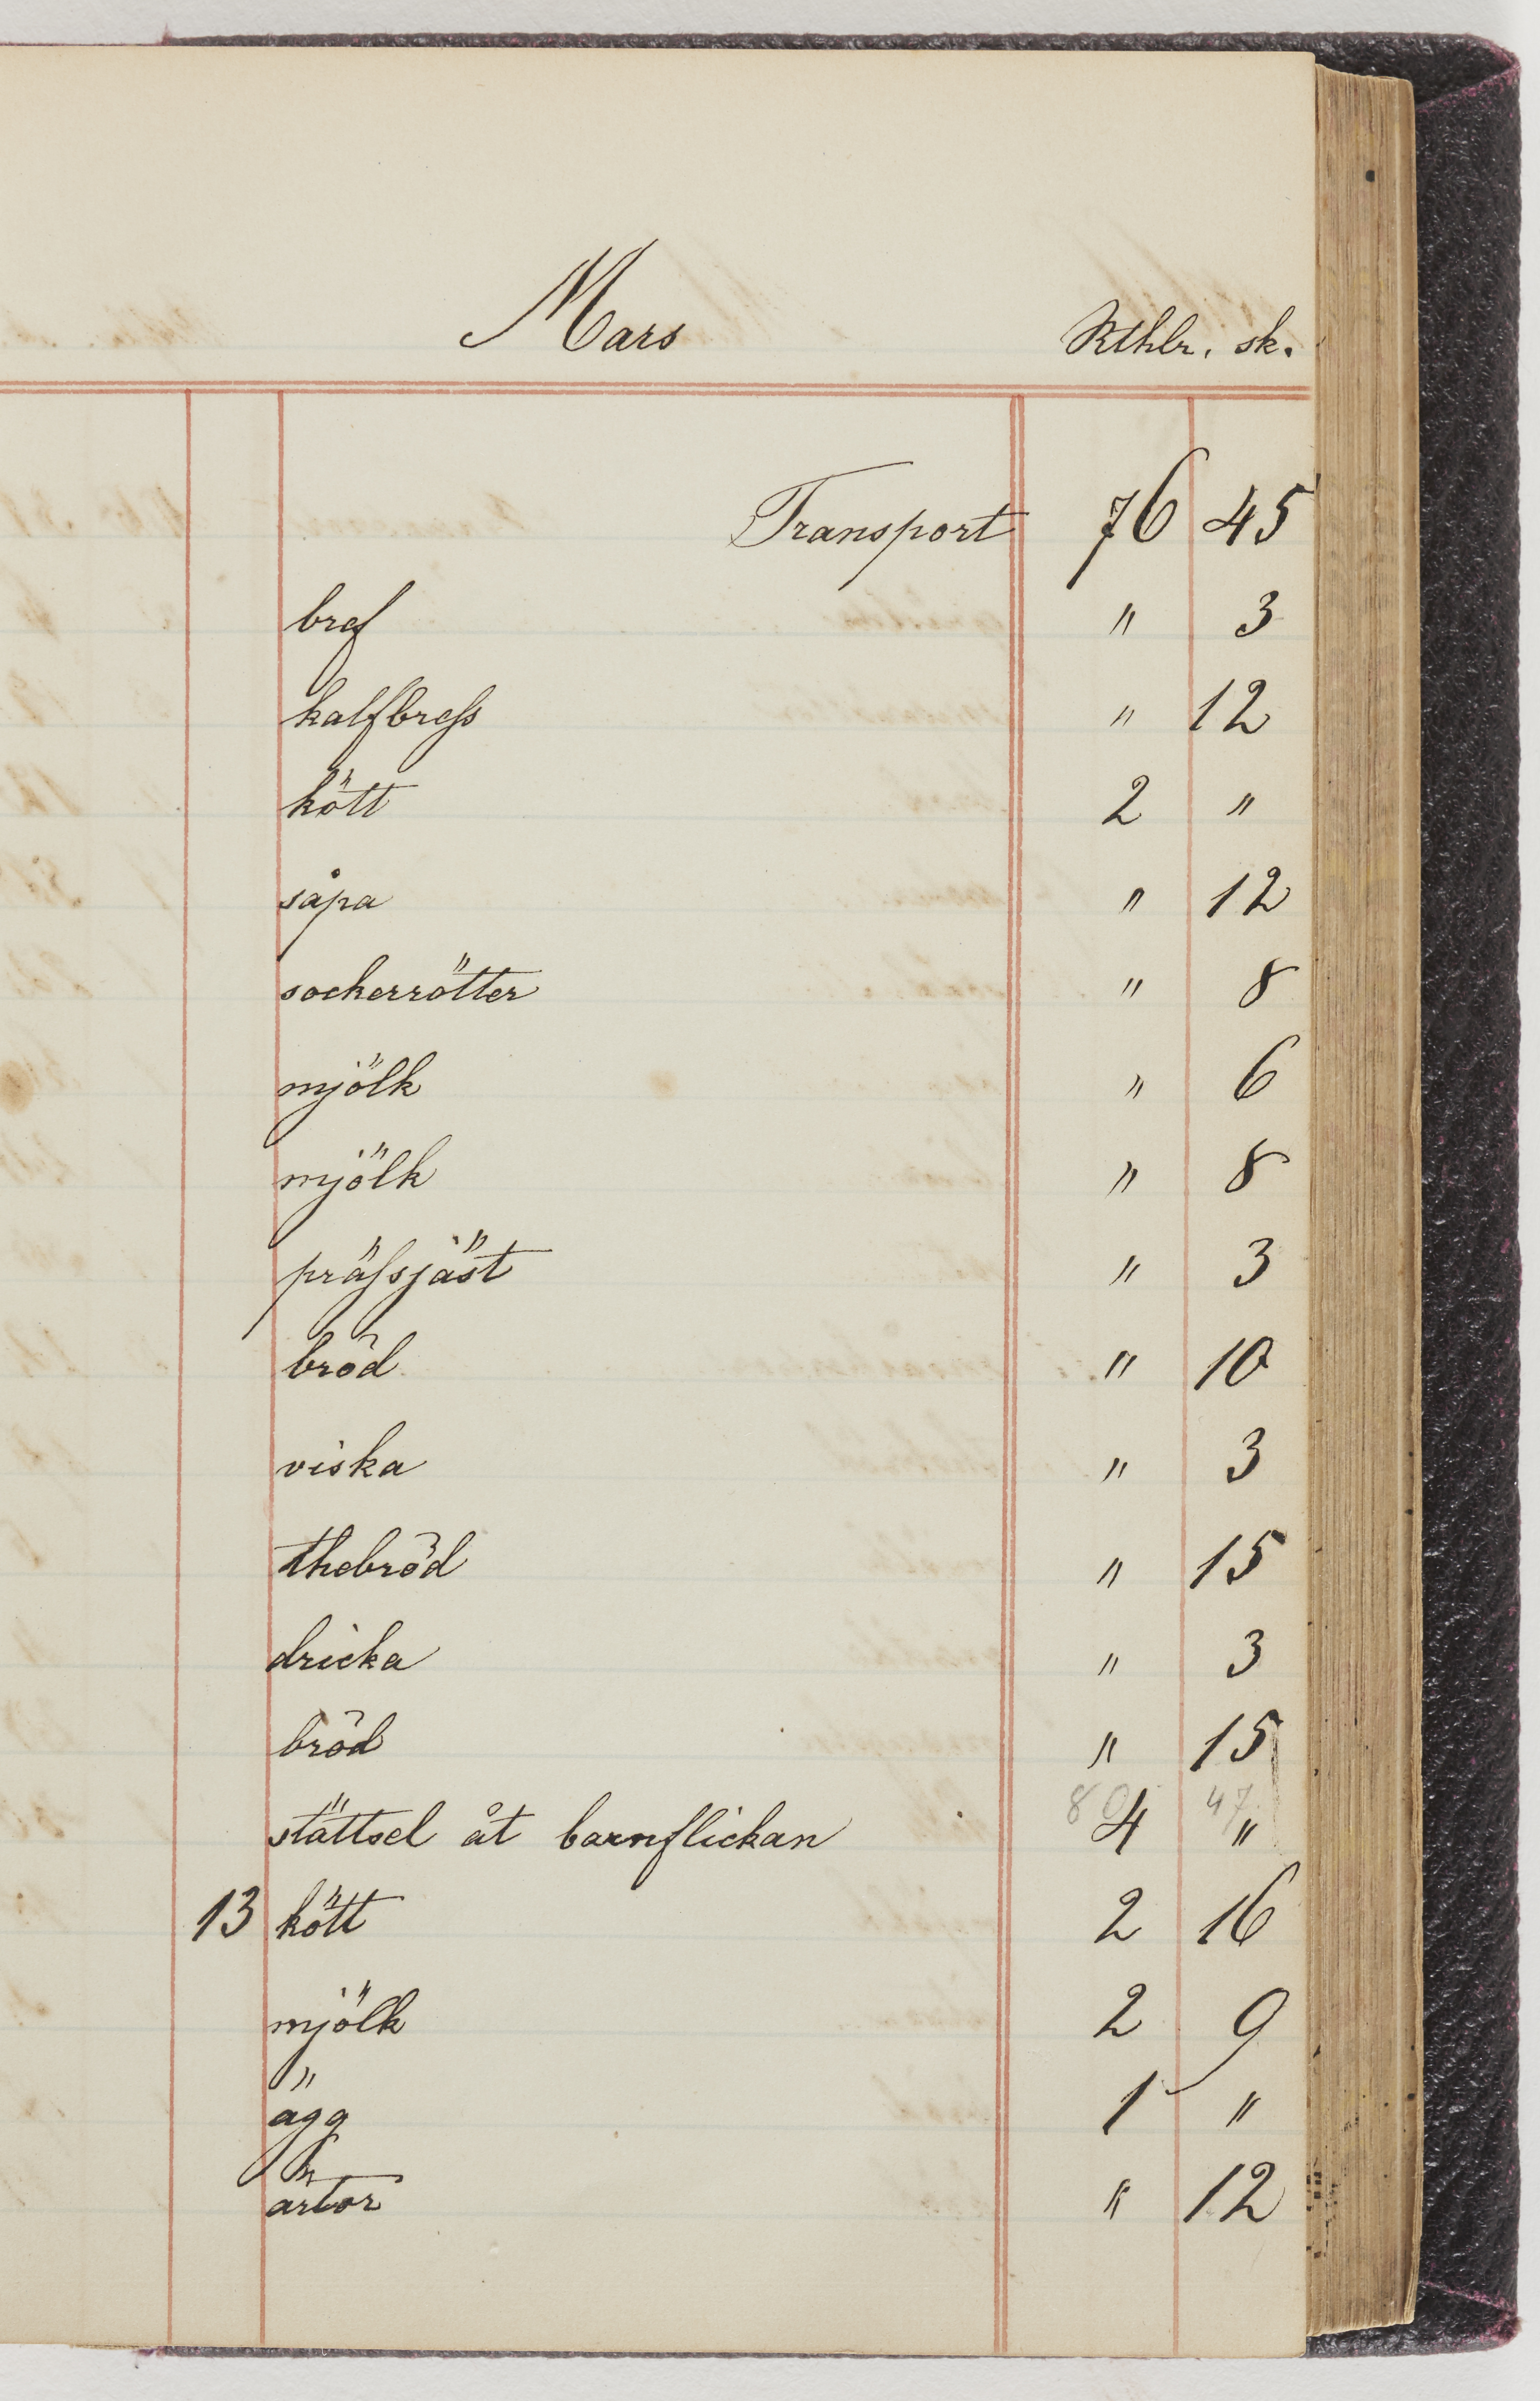 Mars Rthlr. sk.
Transport 76 45
bref " 3
kalfbress " 12
kött 2 "
såpa " 12
sockerrötter " 8
mjölk " 6
mjölk " 8
prässjäst " 3
bröd " 10
viska " 3
thebröd " 15
dricka " 3
bröd " 15
80 47
stättsel åt barnflickan 4 "
13 kött 2 16
mjölk 2 9
ägg 1 "
ärtor " 12